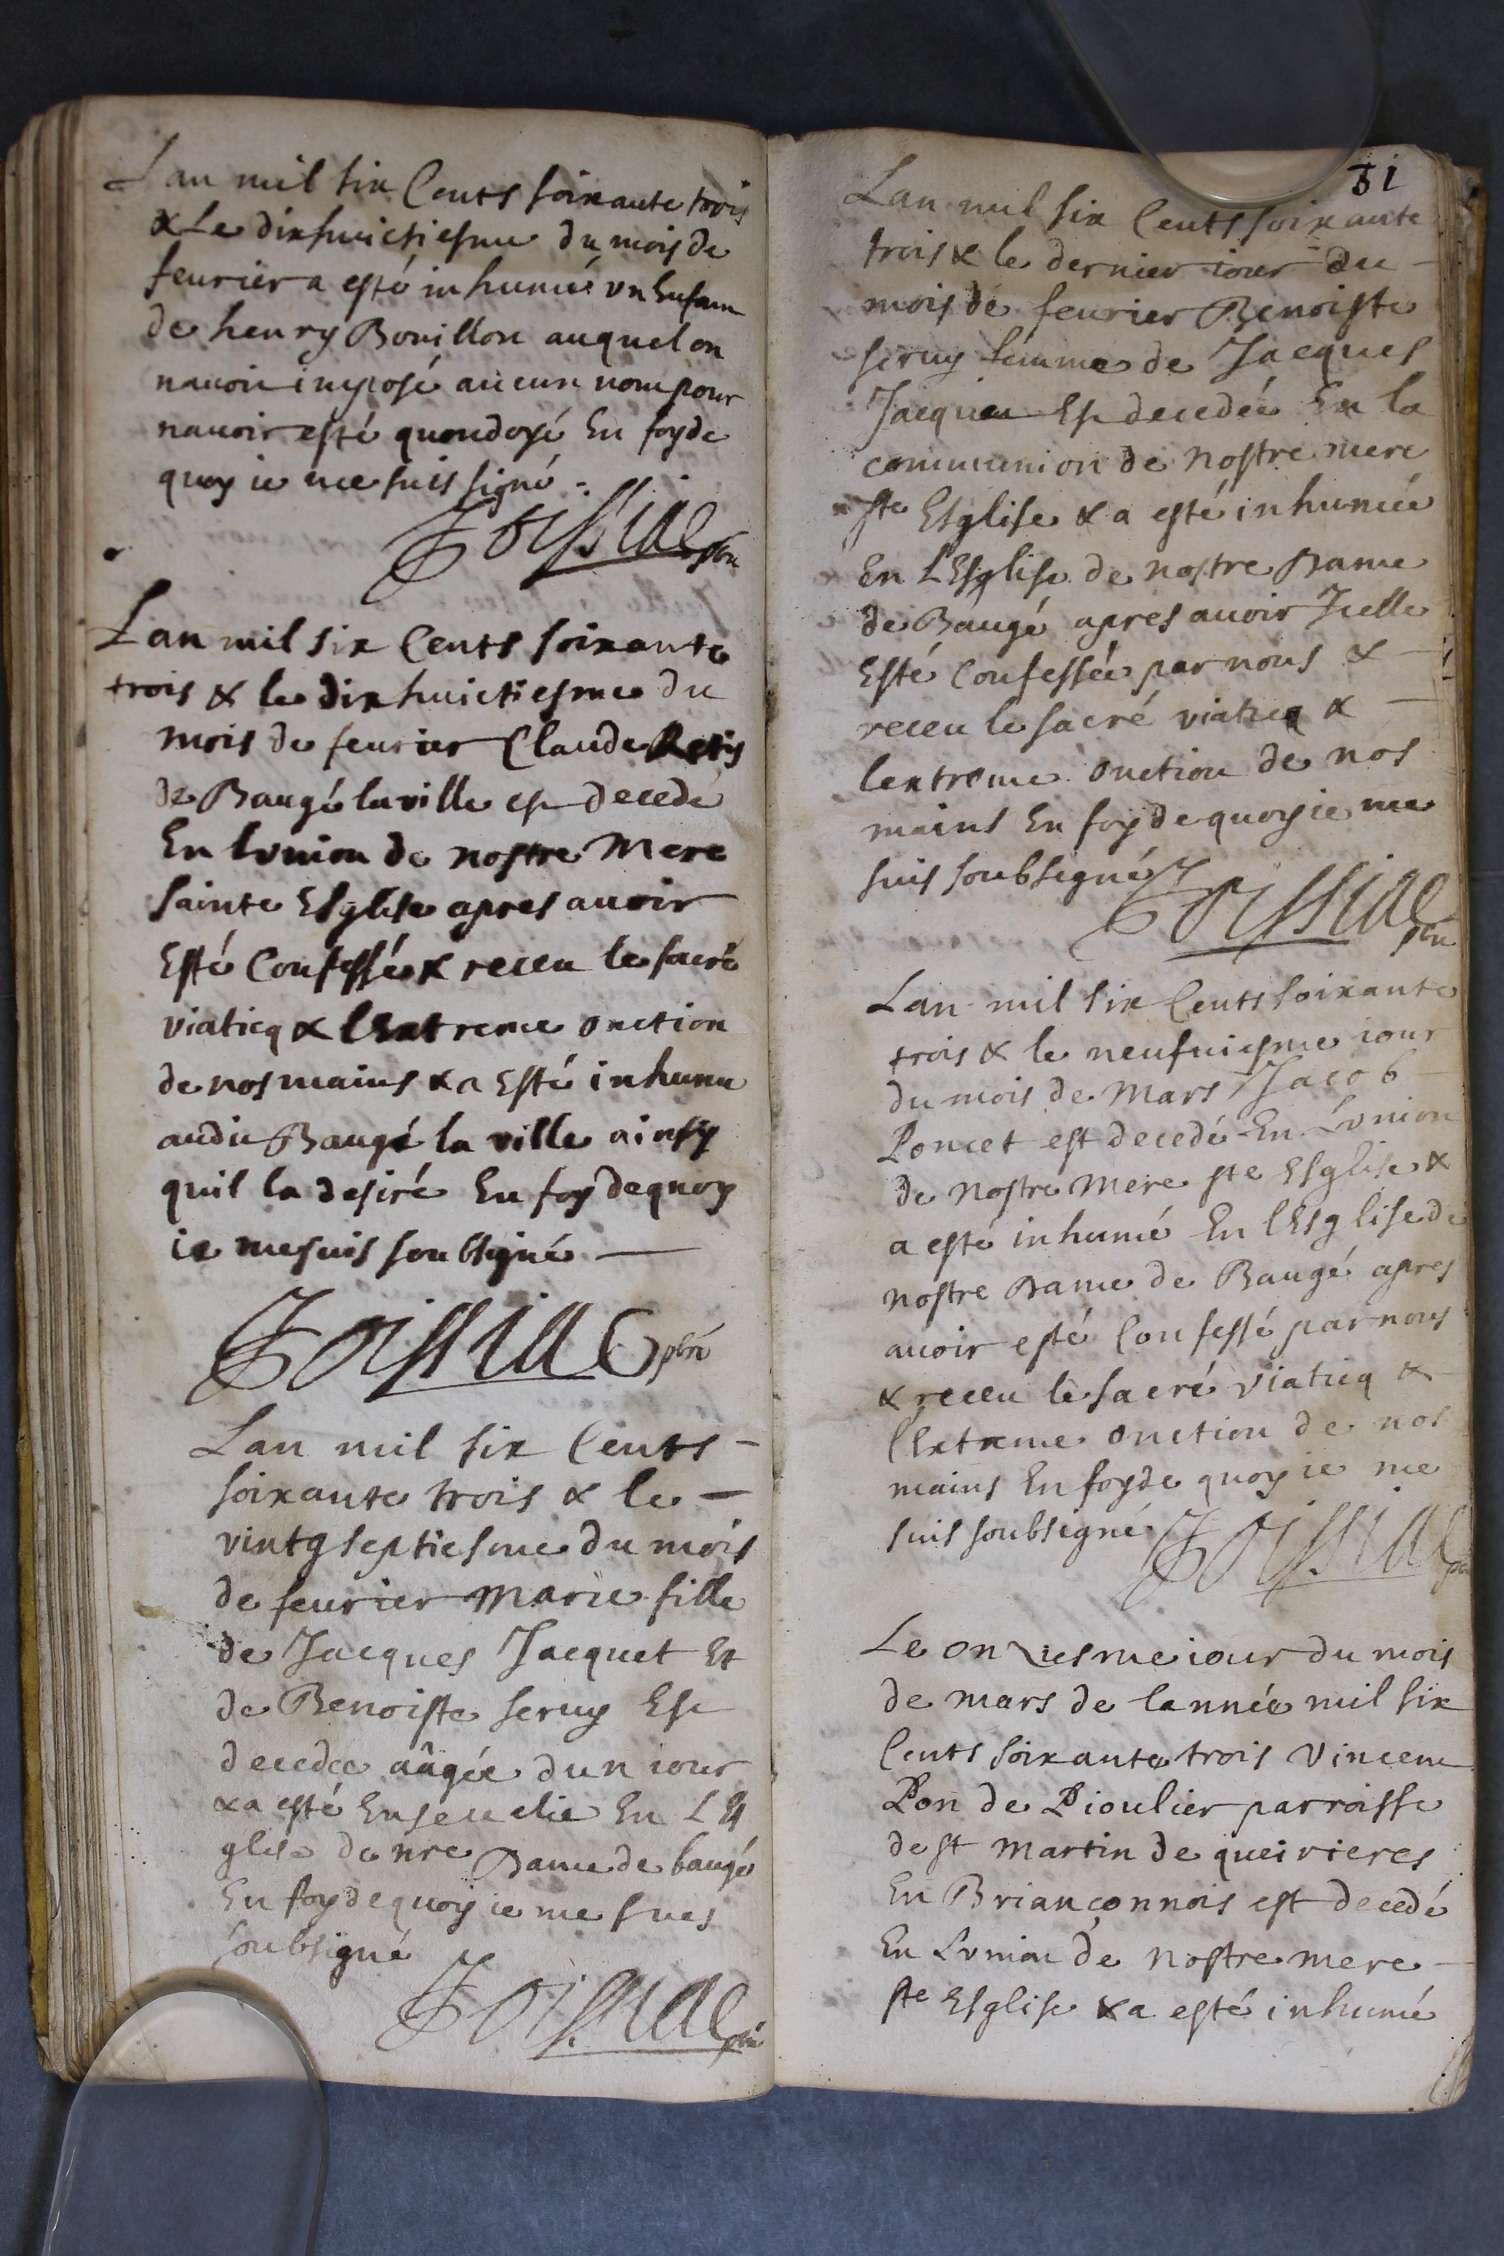 Lan mil six Cents soixante trois
& Le dixhuictiesme du mois de
feurier a esté inhumé vn Enfan
de henry Bouillon auquel on
nauoit imposé aucun nom pour
nauoir esté quondoyé En foy de
quoy ie me suis signé
Toissiac pbre
Lan mil six Cents soixante
trois & le dixhuictiesme du
mois de feurier Claude
de Baugé la ville est decedé
En lvnion de nostre Mere
sainte Esglise apres auoir
Esté Confessé & receu le sacré
viaticq & lExtreme onction
de nos mains & a Esté inhumé
audit Baugé la ville ainsy
quil la desiré En foy de quoy
ie me suis soubsigné
Toissiac pbré
Lan mil six Cents
soixante trois & le
vintg septiesme du mois
de feurier Marie fille
de Jacques Jacquet Et
de Benoiste seruy Est
decedee aâgée dun iour
& a esté Enseuelie En LEs
glise de nre Dame de baugé
En foy de quoy ie me suis
soubsigné
Toissiac pbr
81
Lan mil six Cents soixante
trois & le dernier iour du
mois de feurier Benoiste
seruy femme de Jacques
Jacquet Est decedée En la
communion de nostre mere
ste Esglise & a esté inhumée
En LEsglise de nostre Dame
de Baugé apres auoir Icelle
Esté Confessée par nous &
receu le sacré viaticq &
lextreme onction de nos
mains En foy de quoy ie me
suis soubsigné
Toissiac pbr
Lan mil six Cents soixante
trois & le neufuiesme iour
du mois de Mars Jacob
Poncet est decedé En Lvnion
de Nostre Mere ste Esglise &
a esté inhumé En lEsglise de
nostre Dame de Baugé apres
auoir esté Confessé par nous
& receu le sacré viaticq &
lExtreme onction de nos
mains En foy de quoy ie me
suis soubsigné Toissiac pbr
Le onziesme iour du mois
de mars de lannée mil six
Cents soixante trois Vincent
Pon de Pioulier parroisse
de st Martin de queirieres
En Briançonnois est decedé
En Lvnion de Nostre mere
ste Esglise & a esté inhumé